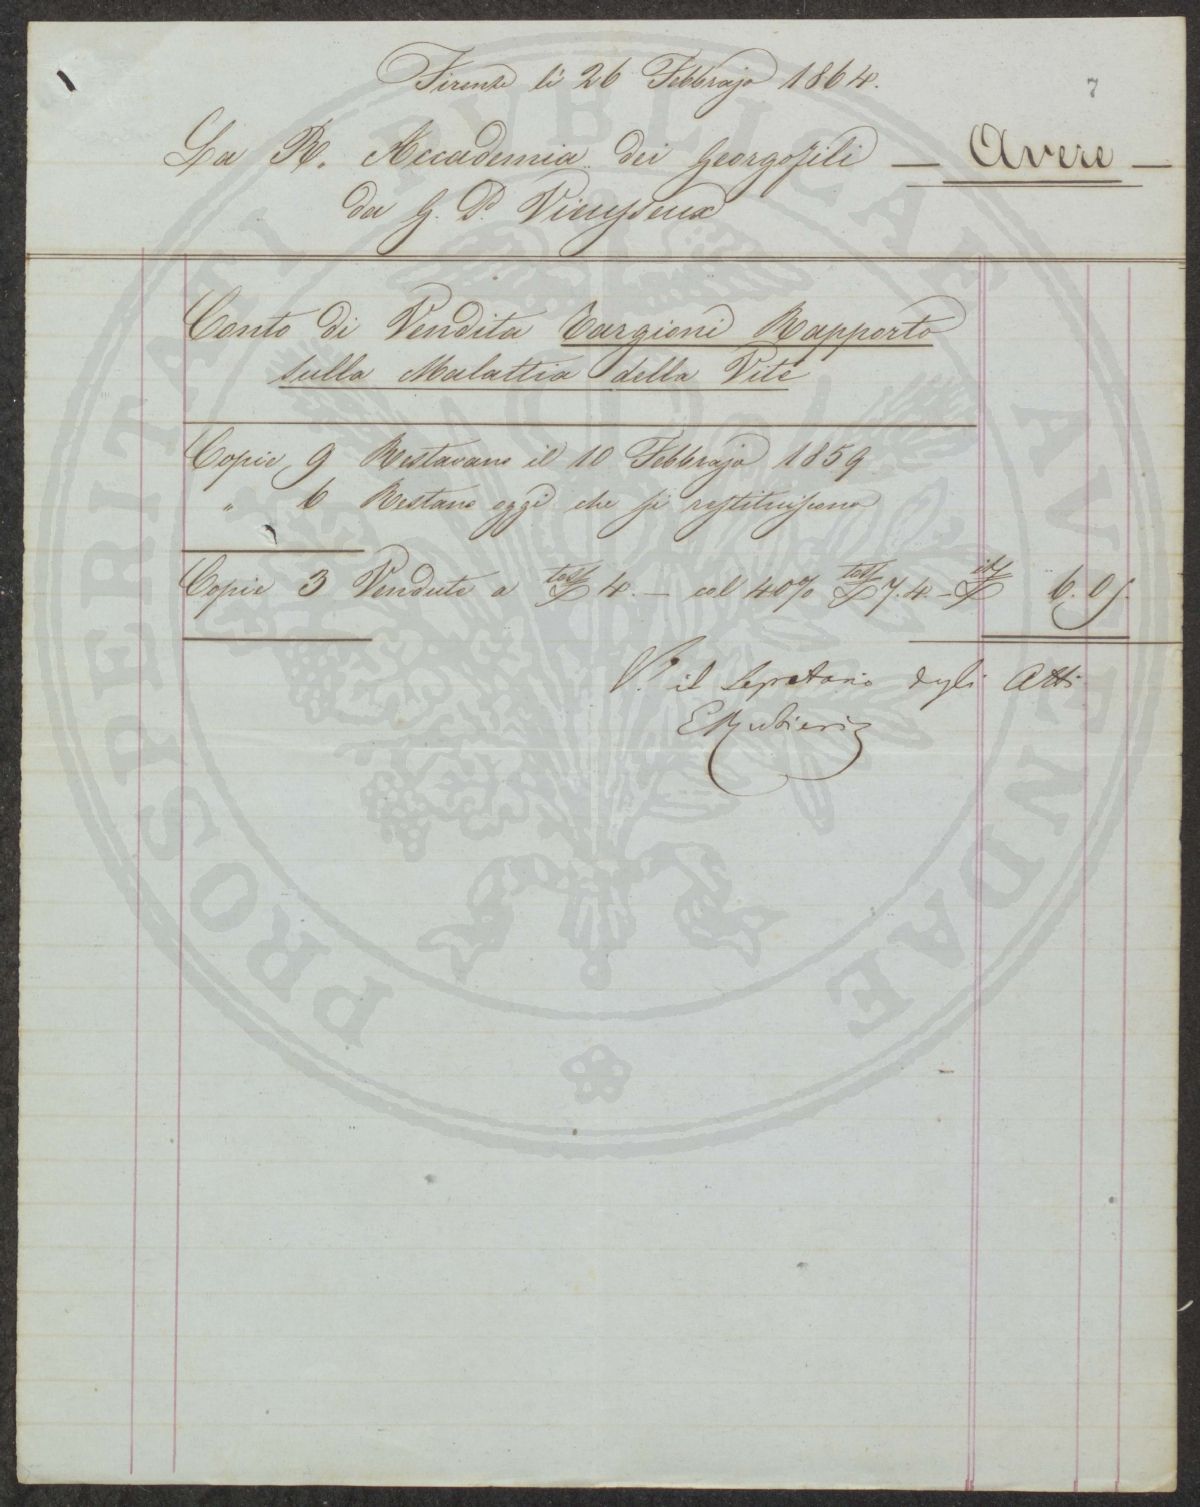 Firenze li 26 Febbrajo 1864.
7
La R. Accademia dei Georgofili — Avere —
da G. P. Vieusseux
Conto di Vendita Targioni Rapporto
sulla Malattia della Vite
Copie 9 Restavano il 10 Febbrajo 1859
" 6 Restano oggi che si restituiscono
Copie 3 Vendute a tosc £ 4. — col 40% tosc £ 7.4. — it £ 6.05.
Vº. il Segretario degli Atti
E Rubieri
PROSPERITATI PUBLICAE AVGENDAE